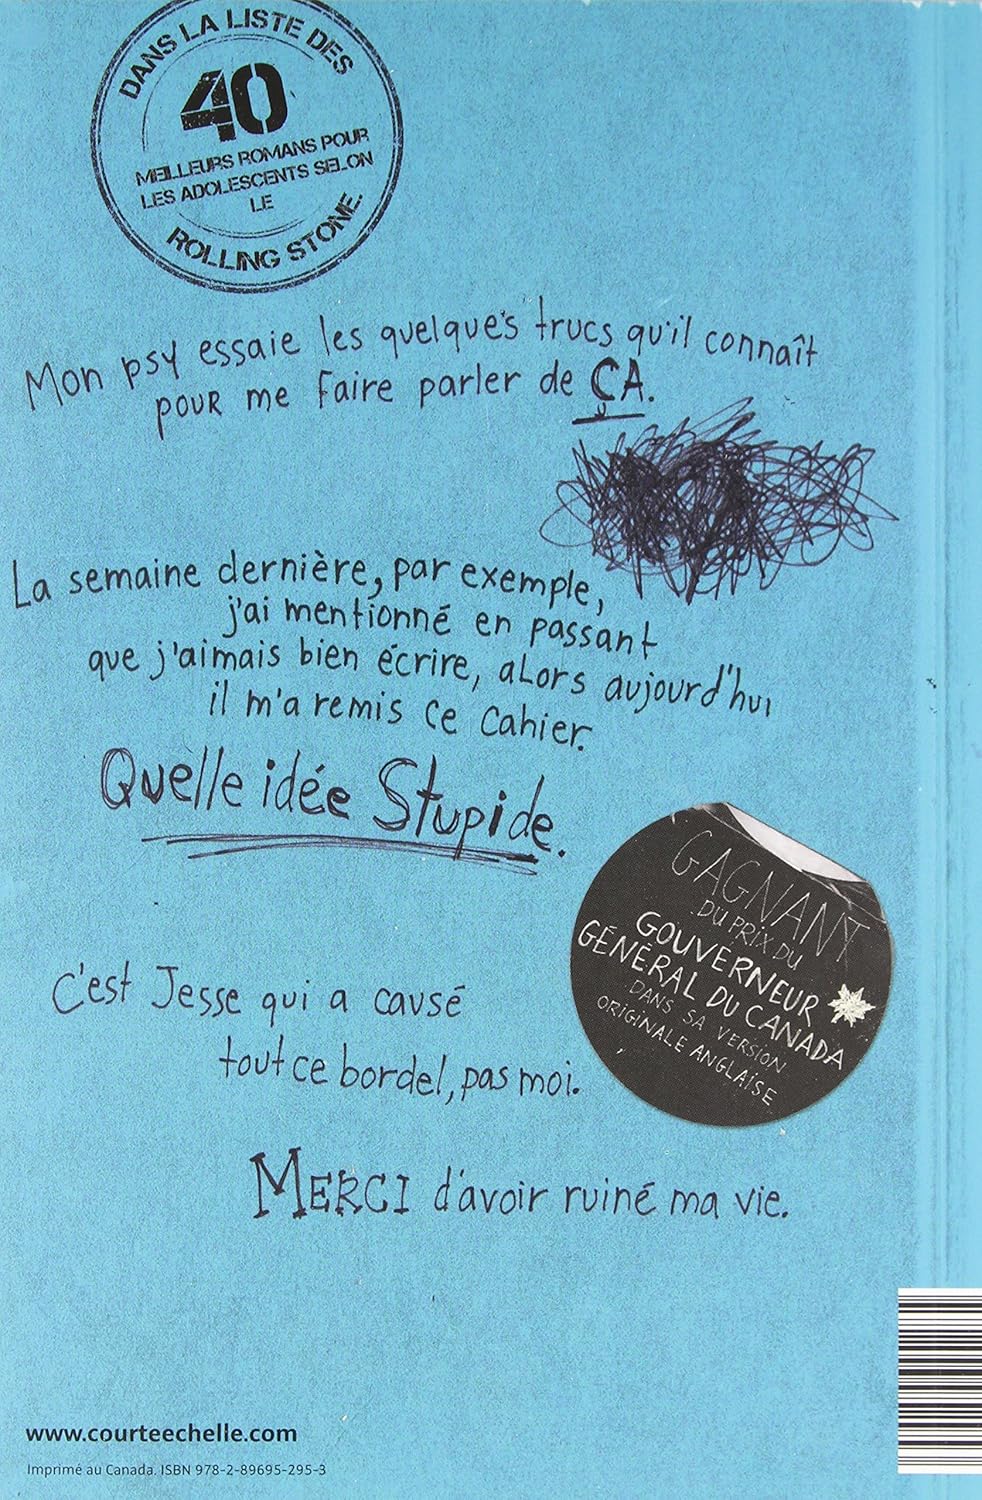 DANS LA LISTE DES
40
MEILLEURS ROMANS POUR
LES ADOLESCENTS SELON
LE
ROLLING STONE.
Mon psy essaie les quelques trucs qu'il connaît
pour me faire parler de ÇA.
La semaine dernière, par exemple,
j'ai mentionné en passant
que j'aimais bien écrire, alors aujourd'hui
il m'a remis ce cahier.
Quelle idée Stupide.
GAGNANT
DU PRIX DU
GOUVERNEUR
GÉNÉRAL DU CANADA
DANS SA VERSION
ORIGINALE ANGLAISE
C'est Jesse qui a causé
tout ce bordel, pas moi.
MERCI d'avoir ruiné ma vie.
www.courteechelle.com
Imprimé au Canada. ISBN 978-2-89695-295-3